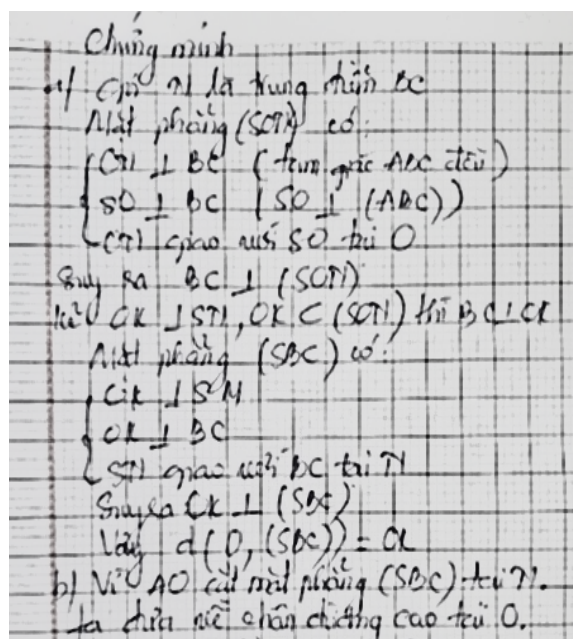 Chứng minh
a/ Gọi M là trung điểm BC
Mặt phẳng (SOM) có:
OM ⊥ BC (tam giác ABC đều)
SO ⊥ BC (SO ⊥ (ABC))
OM giao với SO tại O
Suy ra BC ⊥ (SOM)
Kẻ OK ⊥ SM, OK ⊂ (SOM) thì BC ⊥ OK
Mặt phẳng (SBC) có:
OK ⊥ SM
OK ⊥ BC
SM giao với BC tại M
Suy ra OK ⊥ (SBC)
Vậy d(O, (SBC)) = OK
b) Vì AO cắt mặt phẳng (SBC) tại M.
ta đưa về chân đường cao tại O.